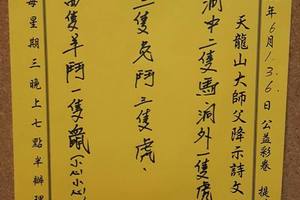 年6月1.3.6.日公益彩卷 提
天龍山大師父降示詩文
洞中二隻雞洞外一隻虎
二隻兔鬥三隻虎、
隻羊鬥一隻鼠(小心小心)
每星期三晚上七點半辦理